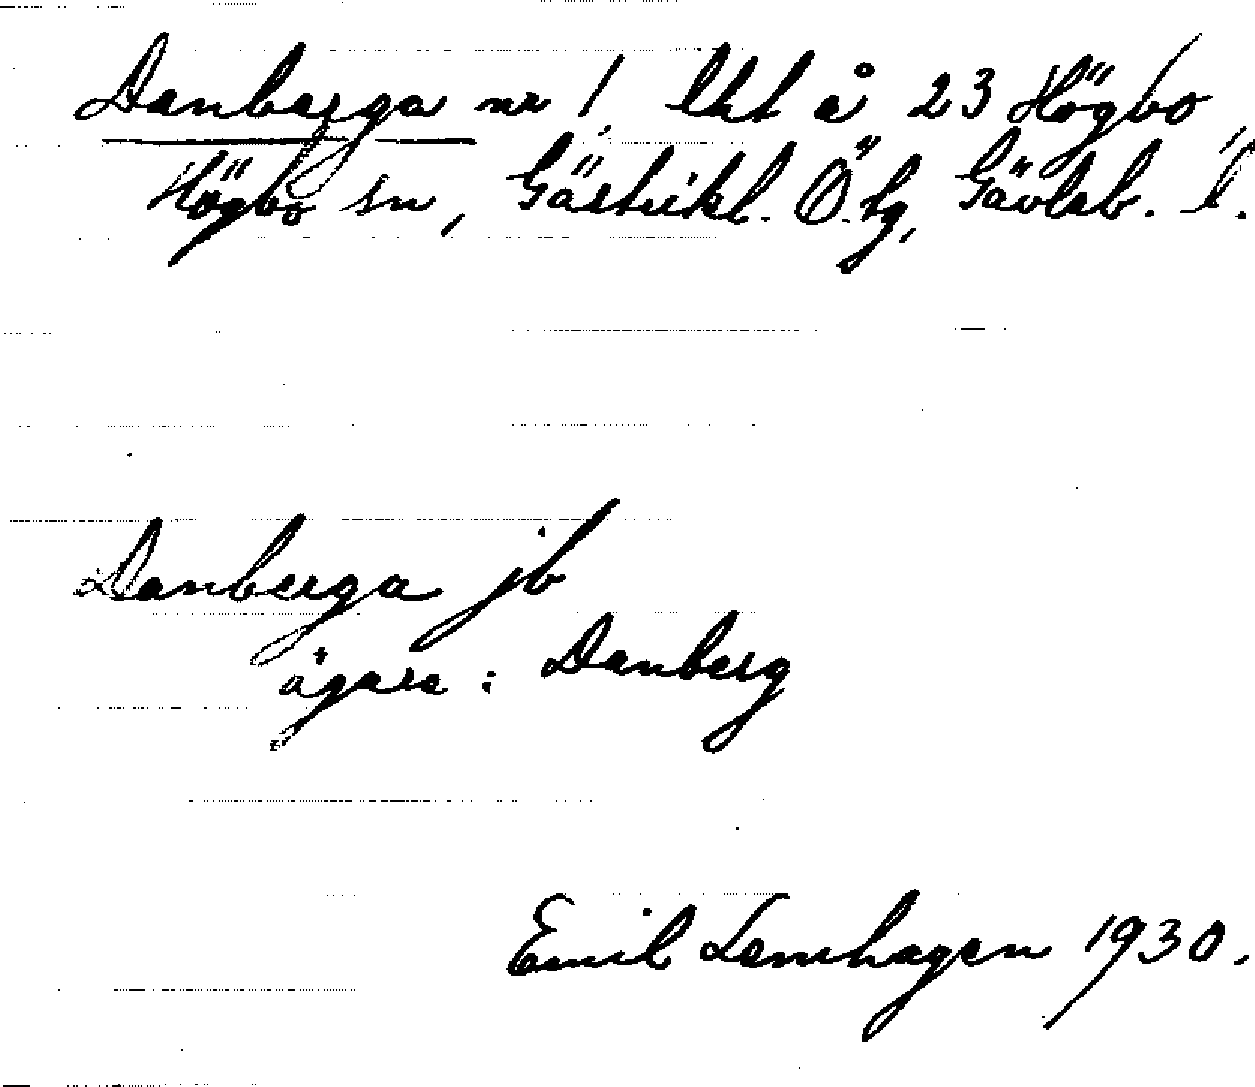 Danberga nr 1, lht å 23 Högbo,
Högbo sn, Gästrikl. Ö. tg, Gävleb. l.
Danberga jb
ägare: Danberg
Emil Lenhagen 1930.